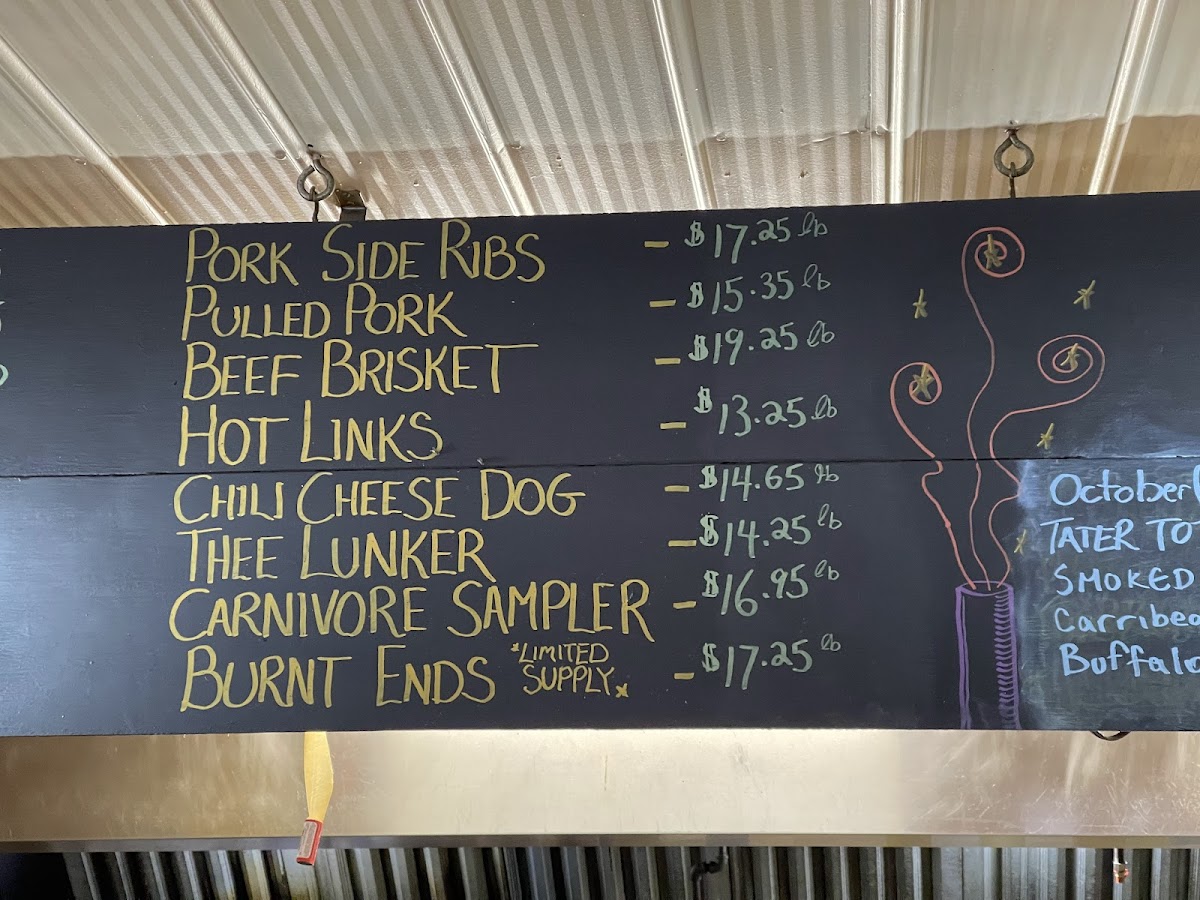 PORK SIDE RIBS - $17.25 lb
PULLED PORK - $15.35 lb
BEEF BRISKET - $19.25 lb
HOT LINKS - $13.25 lb
CHILI CHEESE DOG - $14.65 lb
THEE LUNKER - $14.25 lb
CARNIVORE SAMPLER - $16.95 lb
BURNT ENDS *LIMITED SUPPLY* - $17.25 lb
October
TATER TO
SMOKED
Carribea
Buffalo